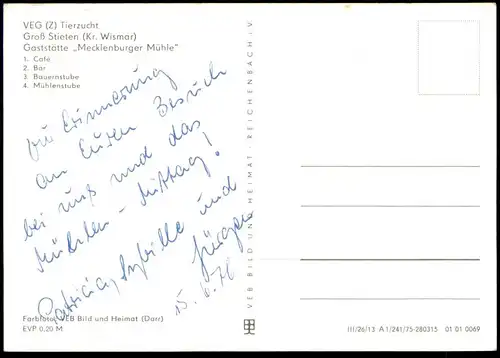 VEG (Z) Tierzucht
Groß Stieten (Kr. Wismar)
Gaststätte „Mecklenburger Mühle"
1. Café
2. Bar
3. Bauernstube
4. Mühlenstube
Zur Erinnerung
an Euren Besuch
bei uns und das
Mühlen-Mittag!
Patricia, Sybille und
Jürgen
Farbfoto: VEB Bild und Heimat (Darr)
EVP 0,20 M
VEB BILD UND HEIMAT · REICHENBACH i. V.
III/26/13 A 1/241/75-280315 01 01 0069